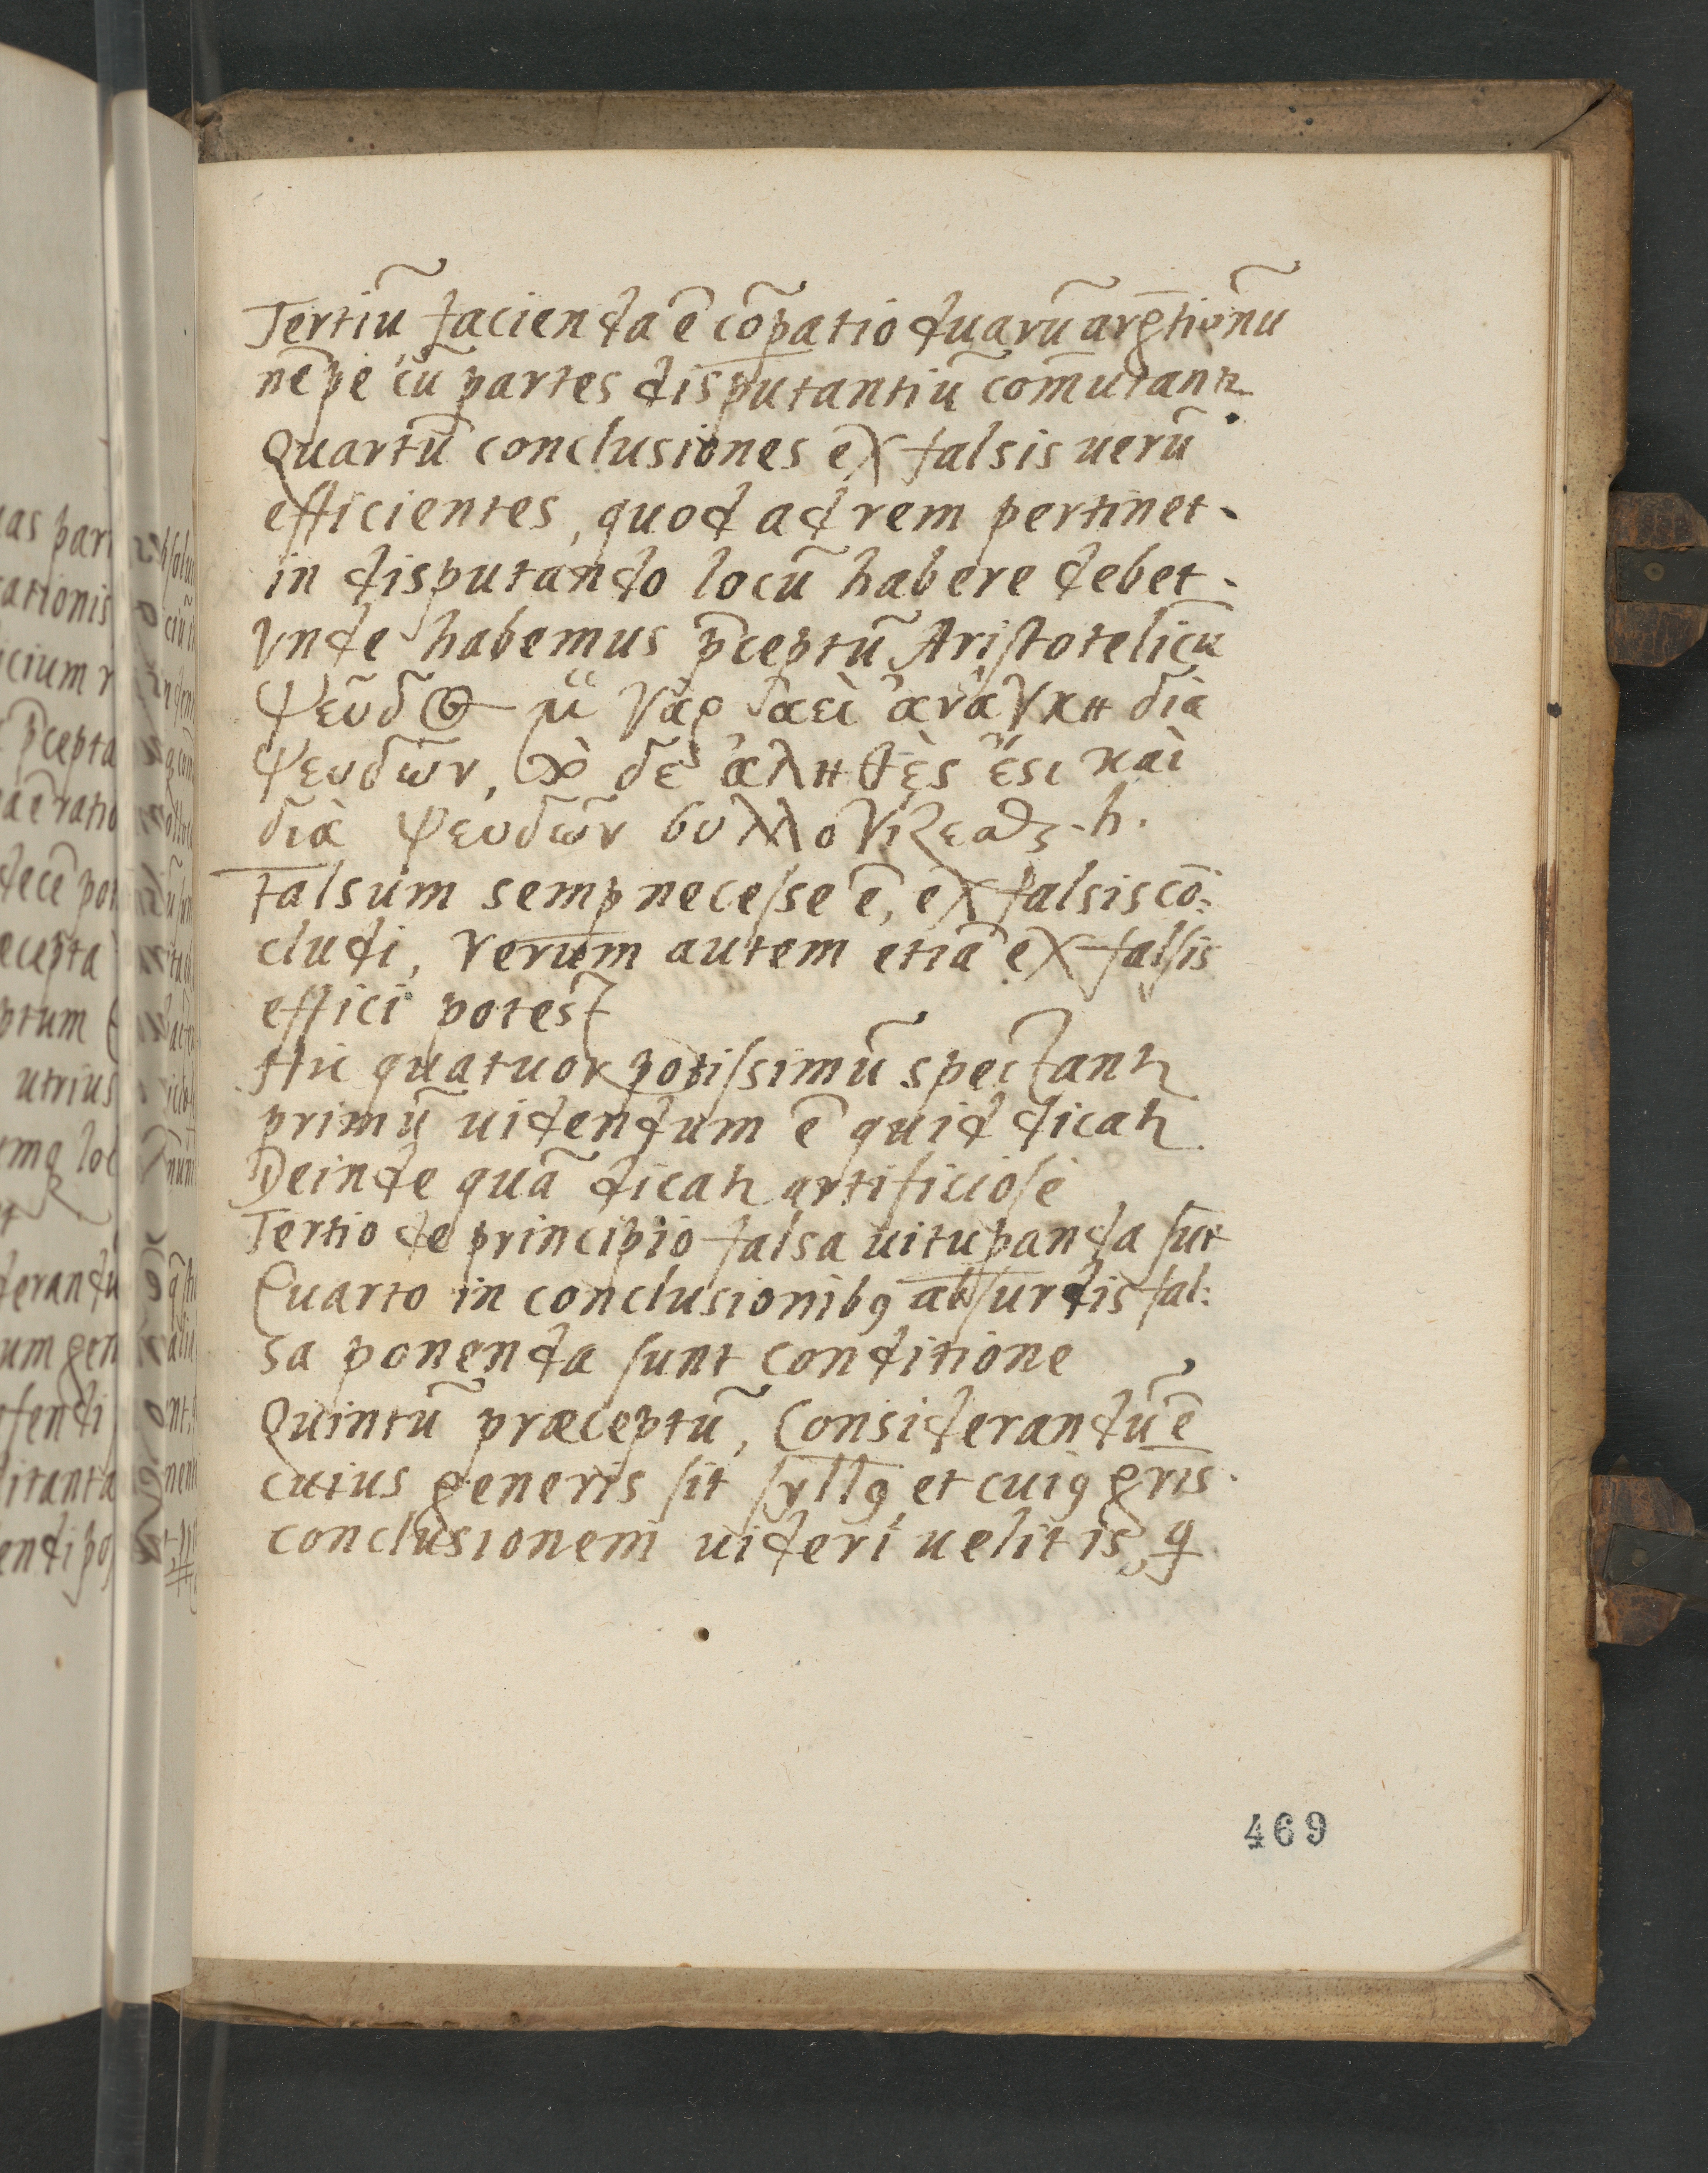 Tertiũ facienda ẽ cõpatio duarũ argt̃ionũ
nẽpe cũ partes disputantiũ com̃utant̃
Quartũ conclusiones ex falsis uerũ
efficientes, quod ad rem pertinet
in disputando locũ habere debet.
Vnde habemus p̃ceptũ Aristotelicũ
ψεῦδος μ̈ γὰρ ἀεὶ ἀνάγκη διὰ
ψευδῶν, τὸ δὲ ἀληθὲς ἔςι καὶ
διὰ ψευδῶν συλλογίζεσθαι. h.
Falsum semp necesse ẽ, ex falsis cõ:
cludi, Verum autem etiã ex falsis
effici potest
Hic quatuor potissimũ spectant̃
primũ uidendum ẽ quid dicat̃
Deinde quã dicat̃ artificiosè
Tertio de principio falsa uitupanda sũt
Quarto in conclusionibꝰ absurdis fal:
sa ponenda sunt conditione
Quintũ præceptũ, Considerandũ ẽ
cuius generis sit syllꝰ et cuiꝰ gr̃is
conclusionem uideri uelit is, q
469
uas par
ationis
icium r
p̃cepta
a ẽ ratio
decẽ pot
ecepta
ptum
utrius
mq loc
derandũ
um gen
fendi
ditanta
endi po